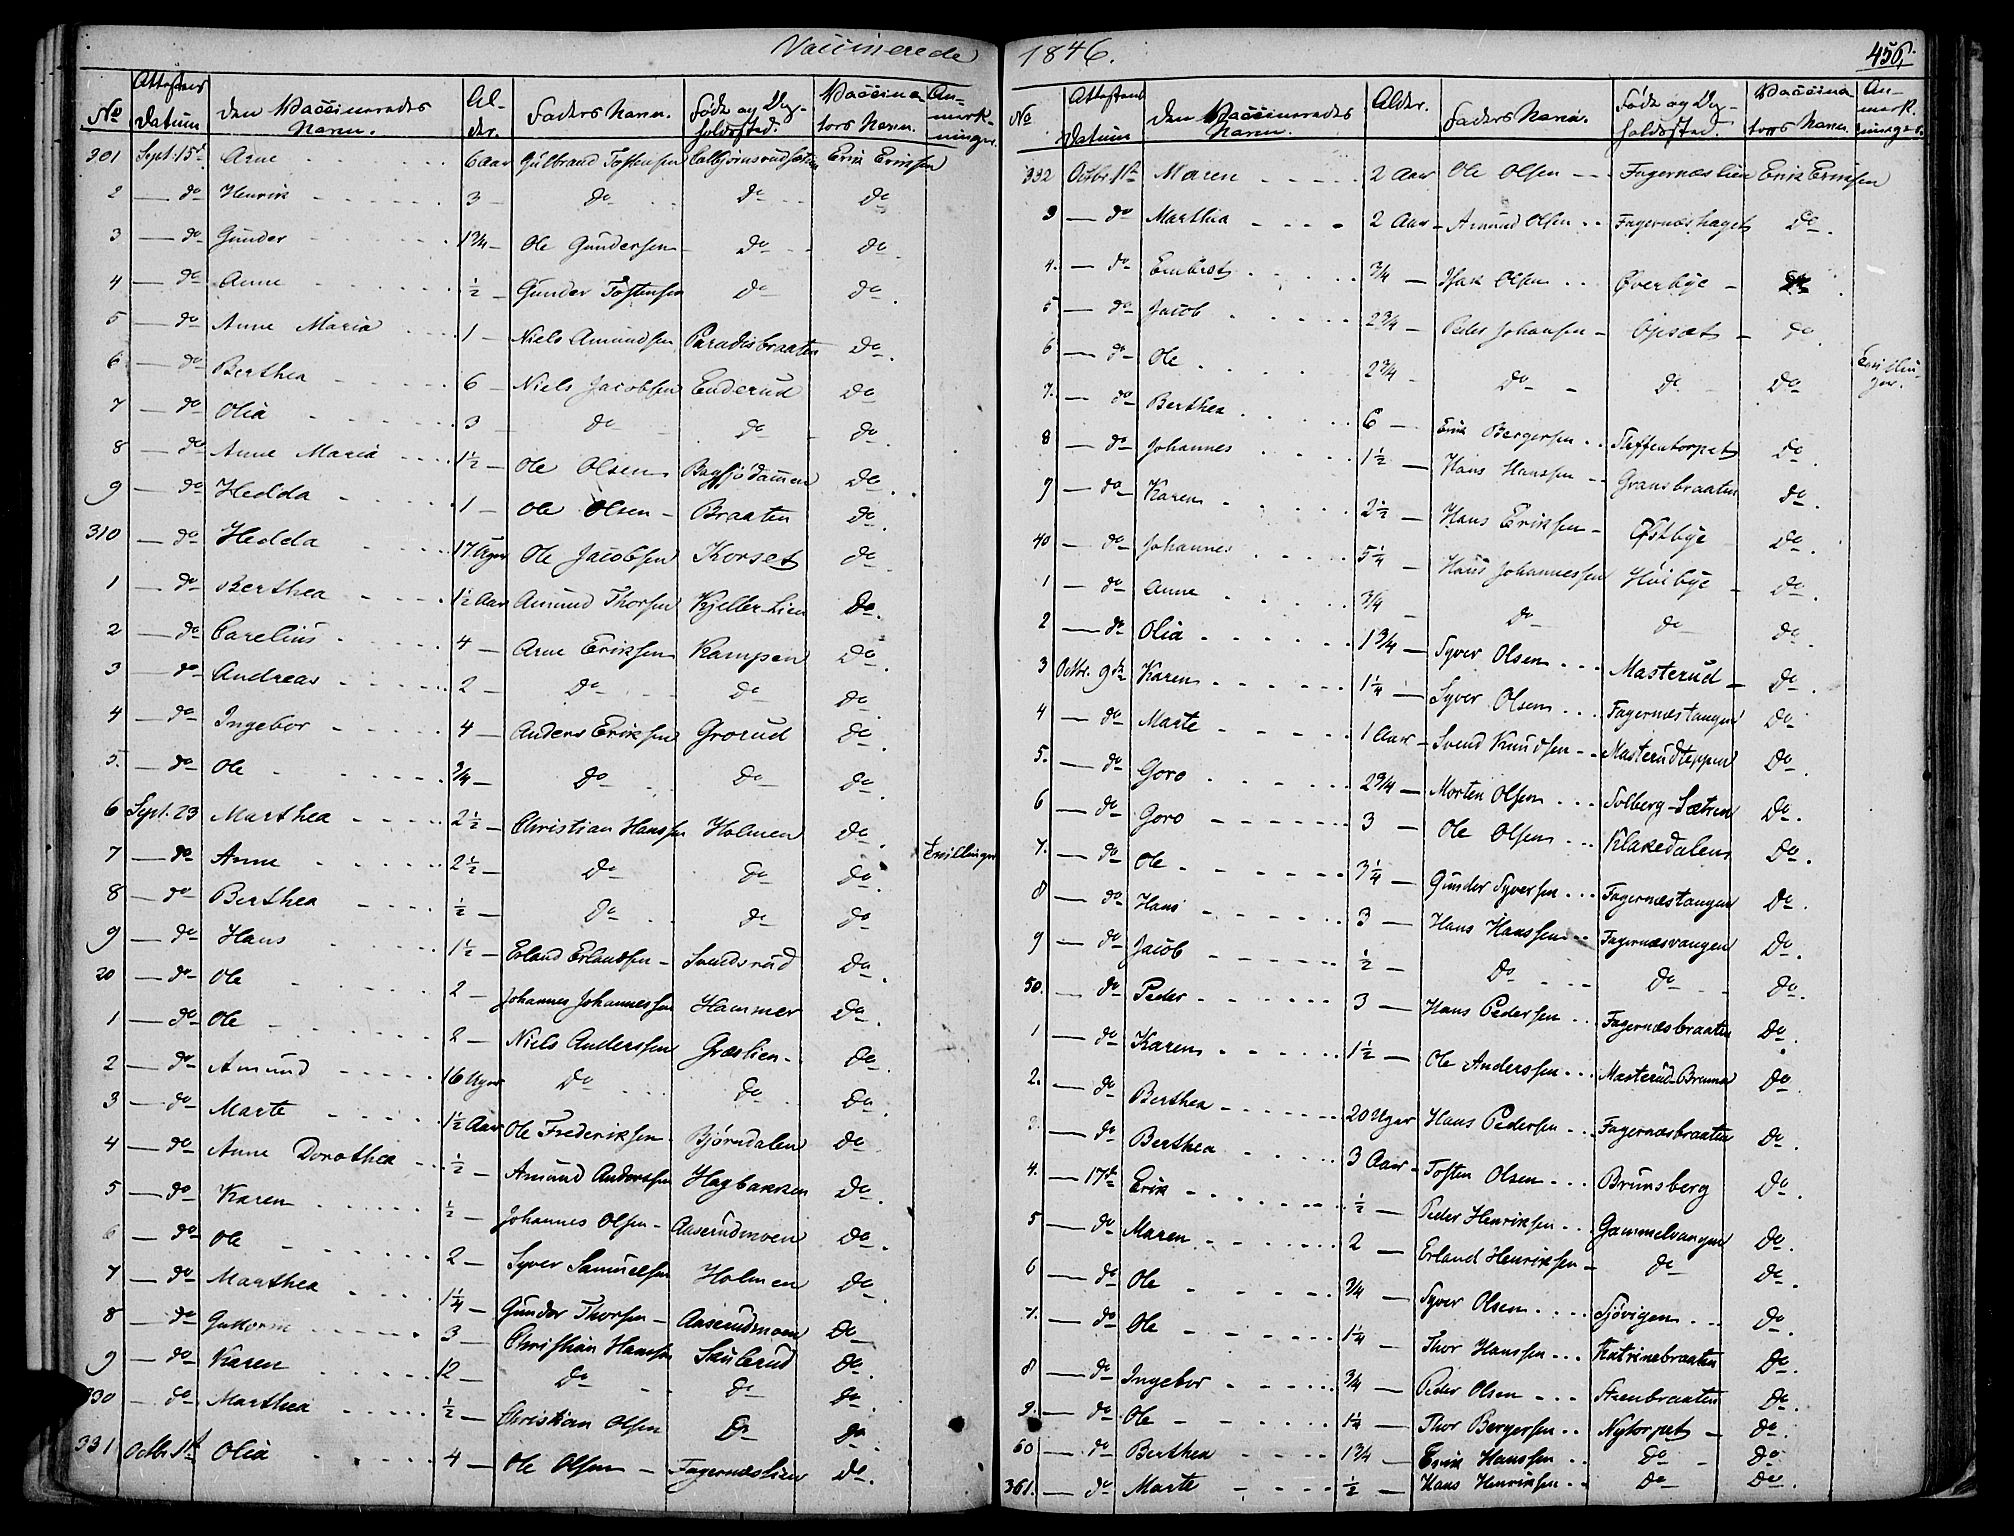 Vaccinerede
No Attestens Datum Den Vaccineredes Navn. Al-der. Faders Navn. Føde og Op-holdssted. Vaccina-tors Navn. An-mærk-ninger.
301 Sept. 15de Arne 6 Aar Gulbrand Tostensen Erik Eriksen
2 — do Henrik 3 — do do do
3 — do Gunder 1 3/4 — Ole Gundersen do do
4 — do Anne 1/2 — Gunder Tostensen do do
5 — do Anne Maria 1 — Niels Amundsen Paradisbraaten do
6 — do Berthea 6 — Niels Jacobsen Enderud do
7 — do Olia 3 — do do do
8 — do Anne Maria 1 1/2 — Ole Olsen do
9 — do Hedda 1 — Ole Olsen Braaten do
310 — do Hedda 17 Uger Ole Jacobsen Korset do
1 — do Berthea 1 1/2 Aar Amund Thorsen Kjeller Lien do
2 — do Carelius 4 — Arne Eriksen Kampen do
3 — do Andreas 2 — do do do
4 — do Ingebor 4 — Anders Eriksen Grorud do
5. — do Ole 3/4 — do do do
6 Sept. 23 Marthea 2 1/2 — Christian Hanssen Holmen do
7 — do Anne 2 1/2 — do do do Tvillinger
8 — do Berthea 1/2 — do do do
9 — do Hans 1 1/2 — Erland Erlandsen Svendsrud do
20 — do Ole 2 — Johannes Johannessen Hammer do
1 — do Ole 2 — Niels Anderssen Græslien do
2 — do Amund 16 Uger do do do
3 — do Marte 1 1/2 Aar Ole Frederiksen Bjørndalen do
4 — do Anne Dorothea 1/2 — Amund Anderssen Hagbakken do
5 — do Karen 1/2 — Johannes Olsen Aaserudmoen do
6 — do Ole 2 — Syver Samuelsen Holmen do
7 — do Marthea 1 1/4 — Gunder Thorsen Aaserudmoen do
8 — do Guttorm 3 — Christian Hanssen Saulerud do
9 — do Karen 12 — do do do
330 — do Marthea 1/2 — Christian Olsen do do
331 Octbr. 1ste Olia 4 — Ole Olsen Fagernæslien do
1846. 456.
No Attestens Datum Den Vaccineredes Navn. Alder. Faders Navn. Føde og Op-holdssted. Vaccina-tors Navn. An-mærk-ninger.
332 Octbr. 1ste Maren 2 Aar Ole Olsen Fagernæslien Erik Eriksen
3 — do Marthia 2 Aar Amund Olsen Fagernæshaget do
4. — do Embret 3/4 — Isak Olsen Øverbye do
5 — do Jacob 2 3/4 — Peder Johansen Opsæt do
6 — do Ole 2 3/4 — do do do Tvillin-ger.
7. — do Berthea 6 — Erik Bergersen Steffentorpet do
8 — do Johannes 1 1/2 — Hans Hanssen Gransbraaten do
9 — do Karen 2 1/2 — Hans Eriksen Østbye do
40 — do Johannes 5 1/4 — Hans Johannessen Høibye do
1 — do Anne 3/4 — do do do
2 — do Olia 1 3/4 — Syver Olsen Masterud do
3 Octbr. 9de Karen 1 1/4 — Syver Olsen Fagernæstangen do
4 — do Marte 1 Aar Svend Knudsen Masterudteppen do
5. — do Goro 2 3/4 — Morten Olsen Solberg-Sætren do
6 — do Goro 3 — Ole Olsen Klakedalen do
7. — do Ole 3 1/4 — Gunder Syversen Fagernæstangen do
8 — do Hans 3 — Hans Hanssen Fagernæsvangen do
9 — do Jacob 1/2 — do do do
50. — do Peder 3 — Hans Pedersen Fagernæsbraaten do
1 — do Karen 1 1/2 — Ole Anderssen Masterud-Brenna do
2. — do Berthea 20 Uger Hans Pedersen Fagernæsbraaten do
3. — do Berthea 3 Aar Tosten Olsen Brunsberg do
4. — 17de Erik 1/2 — Peder Henriksen Gammelvangen do
5 — do Maren 2 — Erland Henriksen do do
6 — do Ole 3/4 — Syver Olsen Sjøvigen do
7. — do Ole 1 1/4 — Thor Hanssen Katrinebraaten do
8 — do Ingebor 3/4 — Peder Olsen Steenbraaten do
9. — do Ole 1 1/4 — Thor Bergersen Nytorpet do
60 — do Berthea 1 3/4 — Erik Hanssen do do
361. — do Marte 1/2 — Hans Henriksen do do